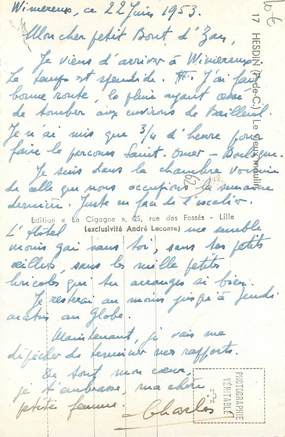 Wimereux, ce 22 Juin 1953.
Mon cher petit Bout d'Zan,
Je viens d'arriver à Wimereux.
Le temps est splendide. J'ai fait
bonne route, la pluie ayant cessé
de tomber aux environs de Bailleul.
Je n'ai mis que 3/4 d'heure pour
faire le parcours Saint-Omer - Boulogne.
Je suis dans la chambre voisine
de celle que nous occupions la semaine
dernière. Juste en face de l'escalier
Edition « La Cigogne », 25, rue des Fossés - Lille
(exclusivité André Leconte)
L'Hôtel me semble
moins gai sans toi, sans tes petits
œillets, sans les mille petits
bricoles que tu arranges si bien.
Je resterai au moins jusqu'à jeudi
matin au Globe.
Maintenant, je vais me
dépêcher de terminer mes rapports.
De tout mon cœur,
je t'embrasse, ma chère
petite femme.
Charles
17 HESDIN (P.-de-C.) - Le Vieux moulin
PHOTOGRAPHIE
VÉRITABLE